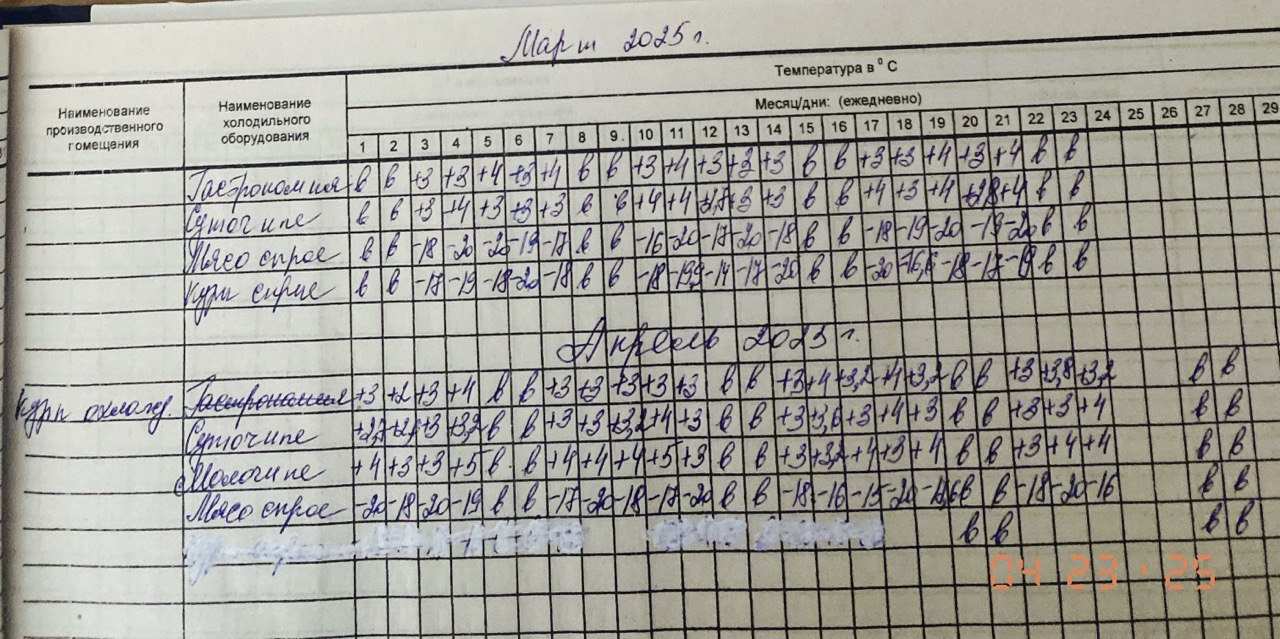 Март 2025 г.
Наименование производственного помещения
Наименование холодильного оборудования
Температура в ⁰ С
Месяц/дни: (ежедневно)
1 2 3 4 5 6 7 8 9 10 11 12 13 14 15 16 17 18 19 20 21 22 23 24 25 26 27 28 29
Гастрономия в в +3 +3 +4 +3 +4 в в +3 +4 +3 +3 +3 в в +3 +3 +4 +3 +4 в в
в в +3 +4 +3 +3 +3 в в +4 +4 +3 +3 в в +4 +3 +4 +4 в в
Мясо сырое в в -18 -20 -20 -19 -17 в в -16 -20 -17 -20 -18 в в -18 -19 -20 -19 -20 в в
Куры сырые в в -17 -19 -18 -20 -18 в в -18 -14 -17 -20 в в -20 -18 -17 -19 в в
Апрель 2025 г.
Куры охлажд. Гастрономия +3 +2 +3 +4 в в +3 +3 +3 +3 +3 в в +3 +4 +3,2 +4 +3,2 в в +3 +3,8 +3,2 в в
+3 +3,2 в в +3 +3 +3,2 +4 +3 в в +3 +3,6 +3 +4 +3 в в +3 +3 +4 в в
+4 +3 +3 +5 в в +4 +4 +4 +5 +3 в в +3 +3,2 +4 +3 +4 в в +3 +4 +4 в в
Мясо сырое -20 -18 -20 -19 в в -17 -20 -18 -17 -20 в в -18 -16 -15 -20 в в -18 -20 -16 в в
в в в в
04 23 '25